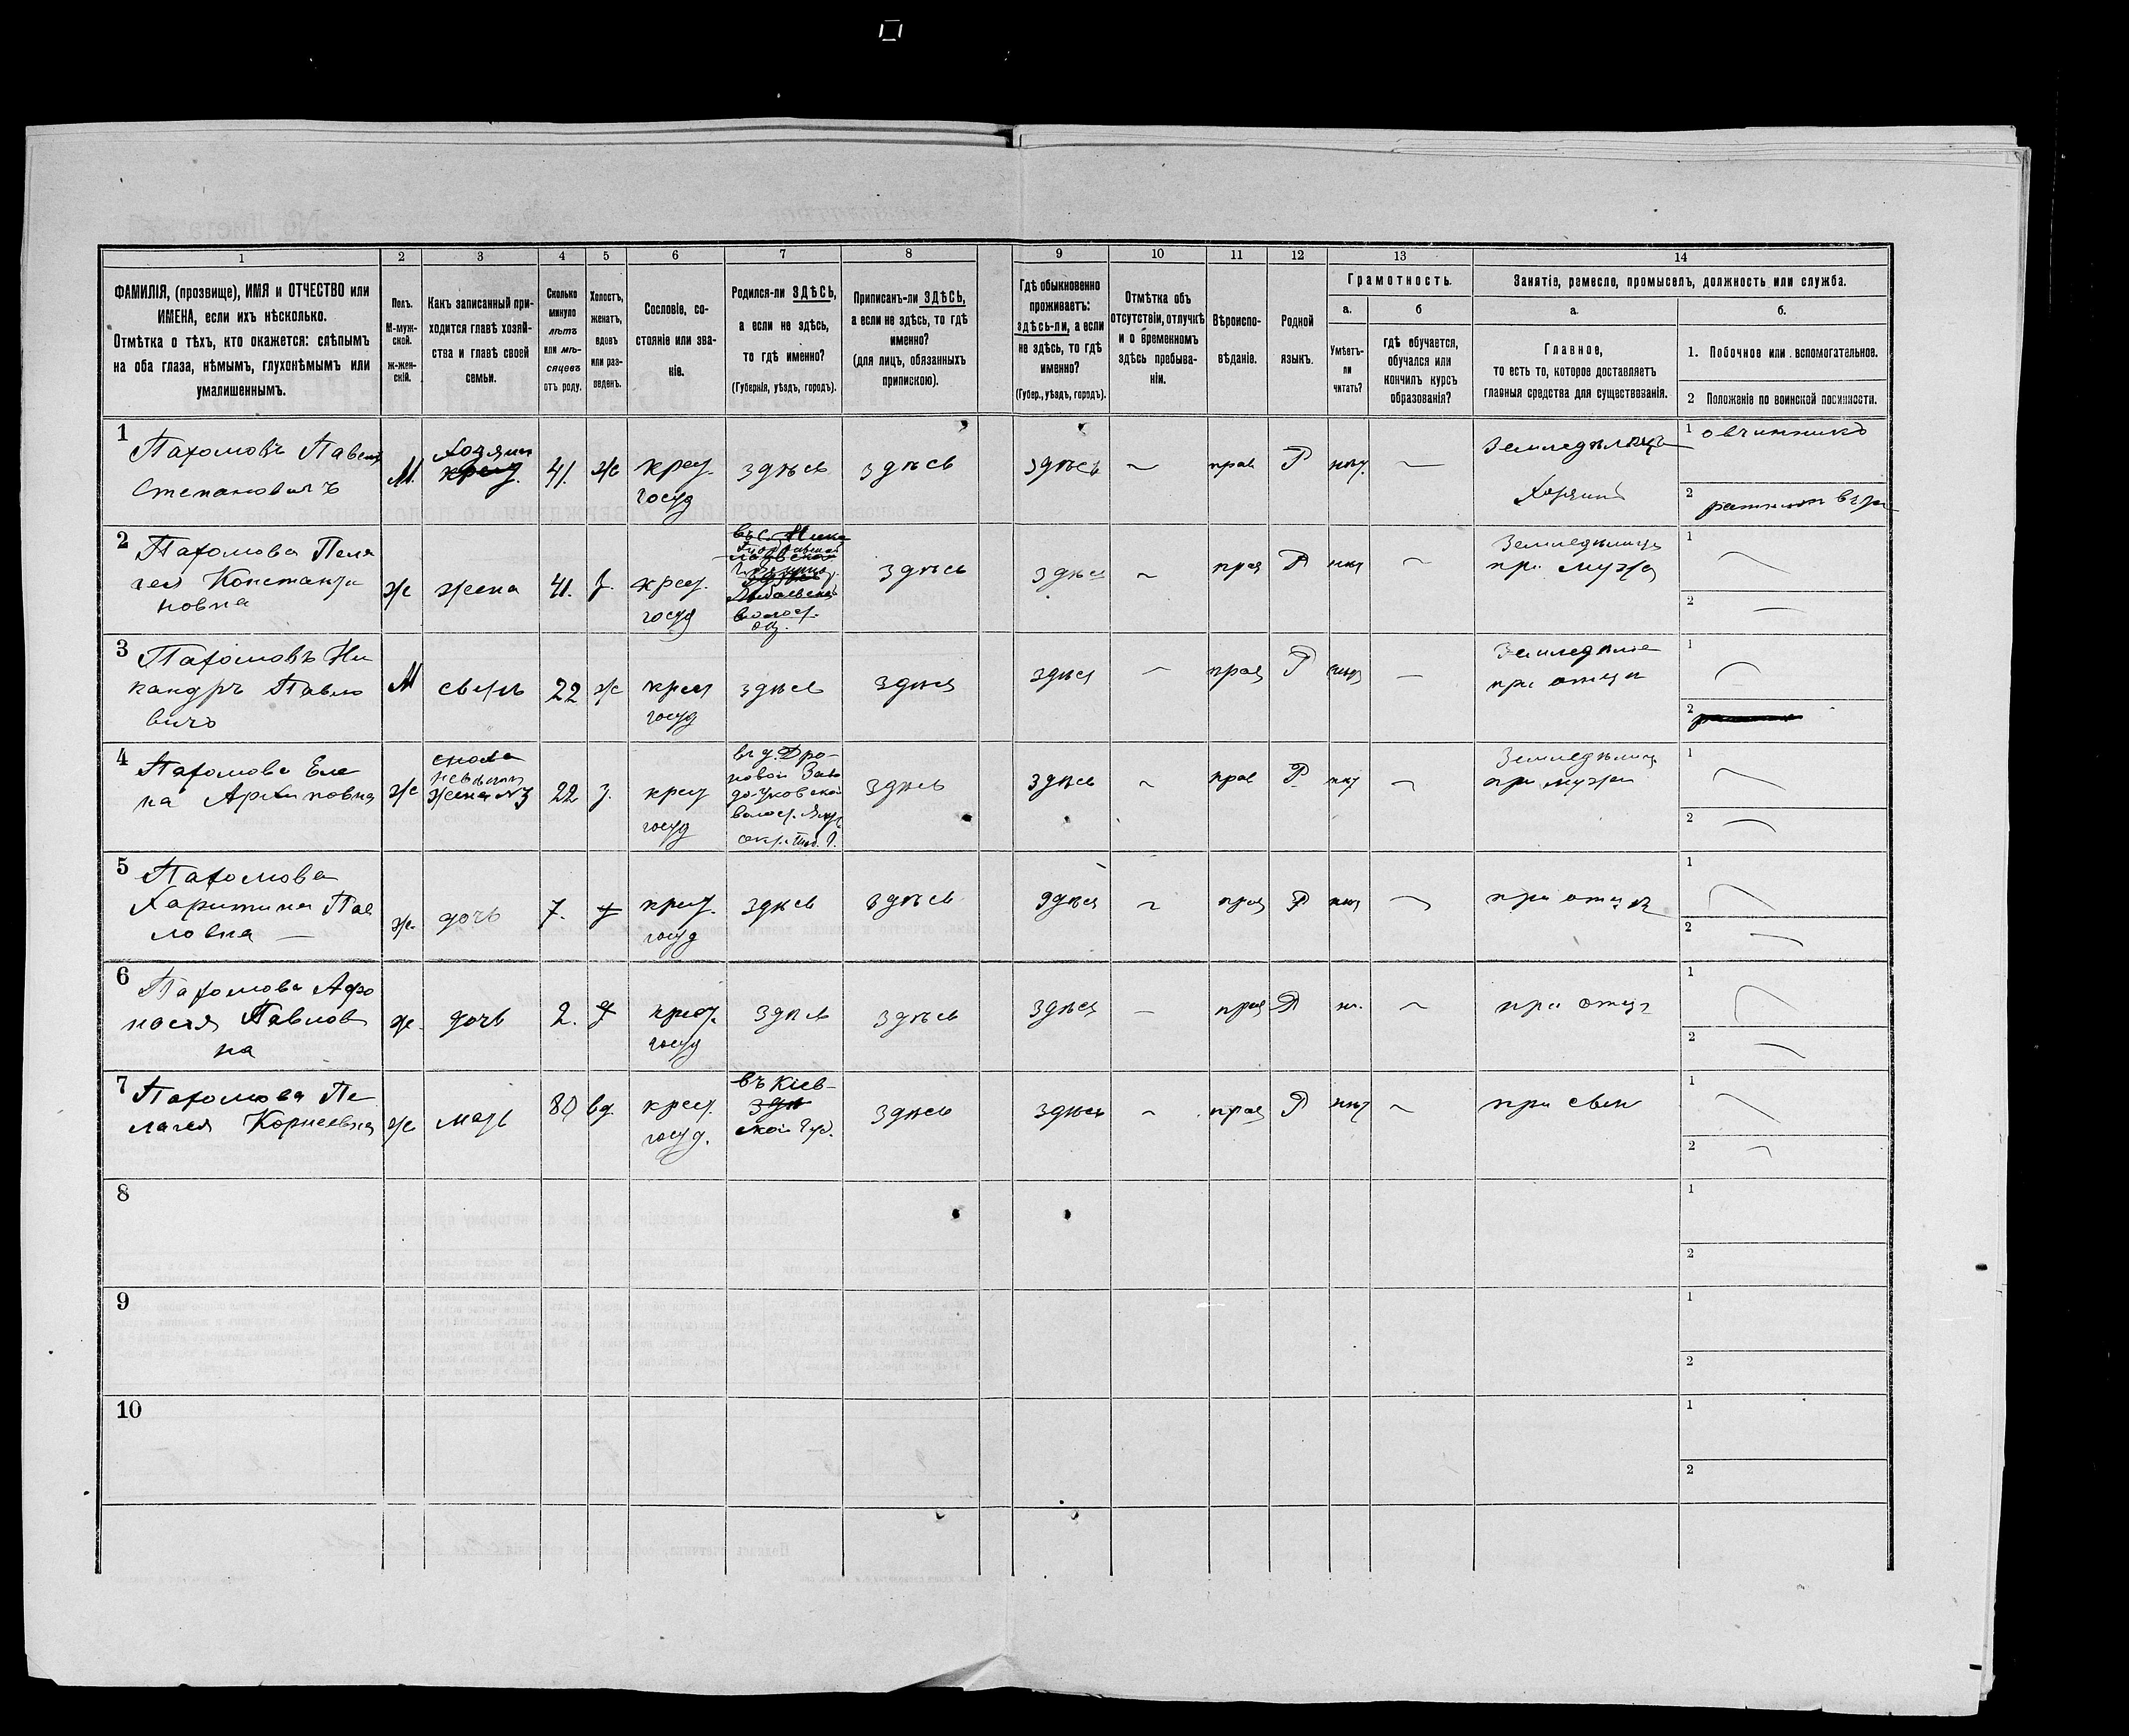 1
2
3
4
5
6
7
8
9
10
11
12
13
14
ФАМИЛІЯ, (прозвище), ИМЯ и ОТЧЕСТВО или
ИМЕНА, если ихъ нѣсколько.
Отмѣтка о тѣхъ, кто окажется: слѣпымъ
на оба глаза, нѣмымъ, глухонѣмымъ или
умалишеннымъ.
Полъ.
М-муж-
ской.
ж-жен-
скій.
Какъ записанный при-
ходится главѣ хозяй-
ства и главѣ своей
семьи.
Сколько
минуло
лѣтъ
или мѣ-
сяцевъ
отъ роду.
Холостъ,
женатъ,
вдовъ
или раз-
веденъ.
Сословіе, со-
стояніе или зва-
ніе.
Родился-ли ЗДѢСЬ,
а если не здѣсь,
то гдѣ именно?
(Губернія, уѣздъ, городъ).
Приписанъ-ли ЗДѢСЬ,
а если не здѣсь, то гдѣ
именно?
(для лицъ, обязанныхъ
припискою).
Гдѣ обыкновенно
проживаетъ:
здѣсь-ли, а если
не здѣсь, то гдѣ
именно?
(Губер., уѣздъ, городъ).
Отмѣтка объ
отсутствіи, отлучкѣ
и о временномъ
здѣсь пребыва-
ніи.
Вѣроиспо-
вѣданіе.
Родной
языкъ.
Грамотность.
а.
б
Умѣетъ-
ли
читать?
гдѣ обучается,
обучался или
кончилъ курсъ
образованія?
Занятіе, ремесло, промыселъ, должность или служба.
а.
б.
Главное,
то есть то, которое доставляетъ
главныя средства для существованія.
1. Побочное или вспомогательное.
2 Положеніе по воинской повинности.
1
Пахомовъ Павелъ
Степановичъ
М.
Хозяин
41.
ж
крес.
госуд
здѣсь
здѣсь
здѣсь
прав
Р
нѣт.
Хозяинъ
1 овчинникъ
2
2
Пахомова Пела
гея Константи
новна
ж
жена
41.
з.
крест.
госуд
здѣсь
здѣсь
прав
Р
нѣт
при мужѣ
1
2
3
Пахомовъ Ни
кандръ Павло
вичъ
М
22
ж
крест
госуд
здѣсь
здѣсь
здѣсь
прав
Р
при отцѣ
1
2
4
Пахомова Еле
на Архиповна
ж
сноха
жена №3
22
з.
крест
госуд
въ д. Дро-
новой Заво
доуковской
волост. Ялут
окр. Тоб. Г.
здѣсь
здѣсь
прав
Р
нѣт
при мужѣ
1
2
5
Пахомова
Харитина Пав
ловна
ж.
дочь
7.
крест.
госуд
здѣсь
здѣсь
здѣсь
прав
Р
нѣт
при отцѣ
1
2
6
Пахомова Афо
насея Павлов
на
ж.
дочь
2.
крест.
госуд
здѣсь
здѣсь
здѣсь
прав
Р
нѣ.
при отцѣ
1
2
7
Пахомова Пе
лагея Корнеевна
ж
мать
80
вд.
крест.
госуд.
въ Кіев-
ской Губ.
здѣсь
здѣсь
прав
Р
нѣт
при сынѣ
1
2
8
1
2
9
1
2
10
1
2